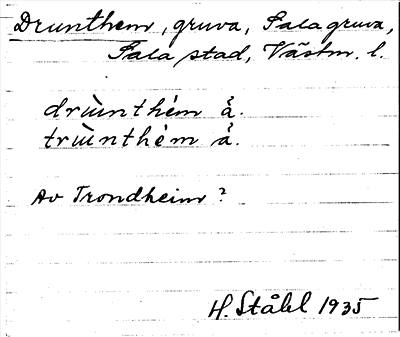 Drunthem, gruva, Sala gruva,
Sala stad, Västm. l.
drùnthém å̉.
trùnthém å̉.
Av Trondheim?
H. Ståhl 1935